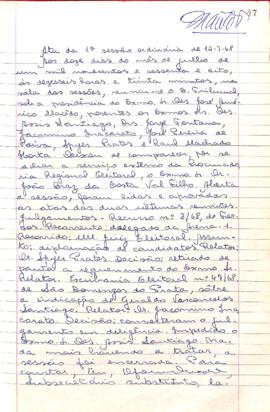 17
Ata da 1ª sessão ordinária de 12-7-68
Aos doze dias do mês de julho de
um mil novecentos e sessenta e oito,
às dezesseis horas e trinta minutos, na
sala das sessões, reuniu-se o E. Tribunal
sob a presidência do Exmo. Sr. Des. José Amé-
rico Macêdo, presentes os exmos. srs. Des.
Assis Santiago, Drs. Jorge Fontana,
Jacomino Inacarato, José Pereira de
Paiva, Prates e Paulo Machado
Horta. Deixou de comparecer, por se
achar a serviço externo da Procurado-
ria Regional Eleitoral, o Exmo. Sr. Dr.
João Braz da Costa Val Filho. Aberta
a sessão, foram lidas e aprovadas
as atas das duas últimas reuniões.
Julgamentos - Recurso nº 3/68, de
Recorrente: delegado da Arena.
Recorrido: MM. Juiz Eleitoral. Assun-
to: diplomação de candidatos. Relator:
Dr. Prates. Decisão: retirado de
pauta a requerimento do exmo. sr.
Relator. Escrivania Eleitoral nº 49/68,
de São Domingos do Prata, sôbre
a indicação de Geraldo Vasconcelos
Santiago. Relator: Dr. Jacomino Ina-
carato. Decisão: converteram o jul-
gamento em diligência. Impedido o
Exmo. Sr. Des. Assis Santiago. Na-
da mais havendo a tratar, a
sessão foi encerrada. Para
constar, Eu,
Subsecretário substituto, la-